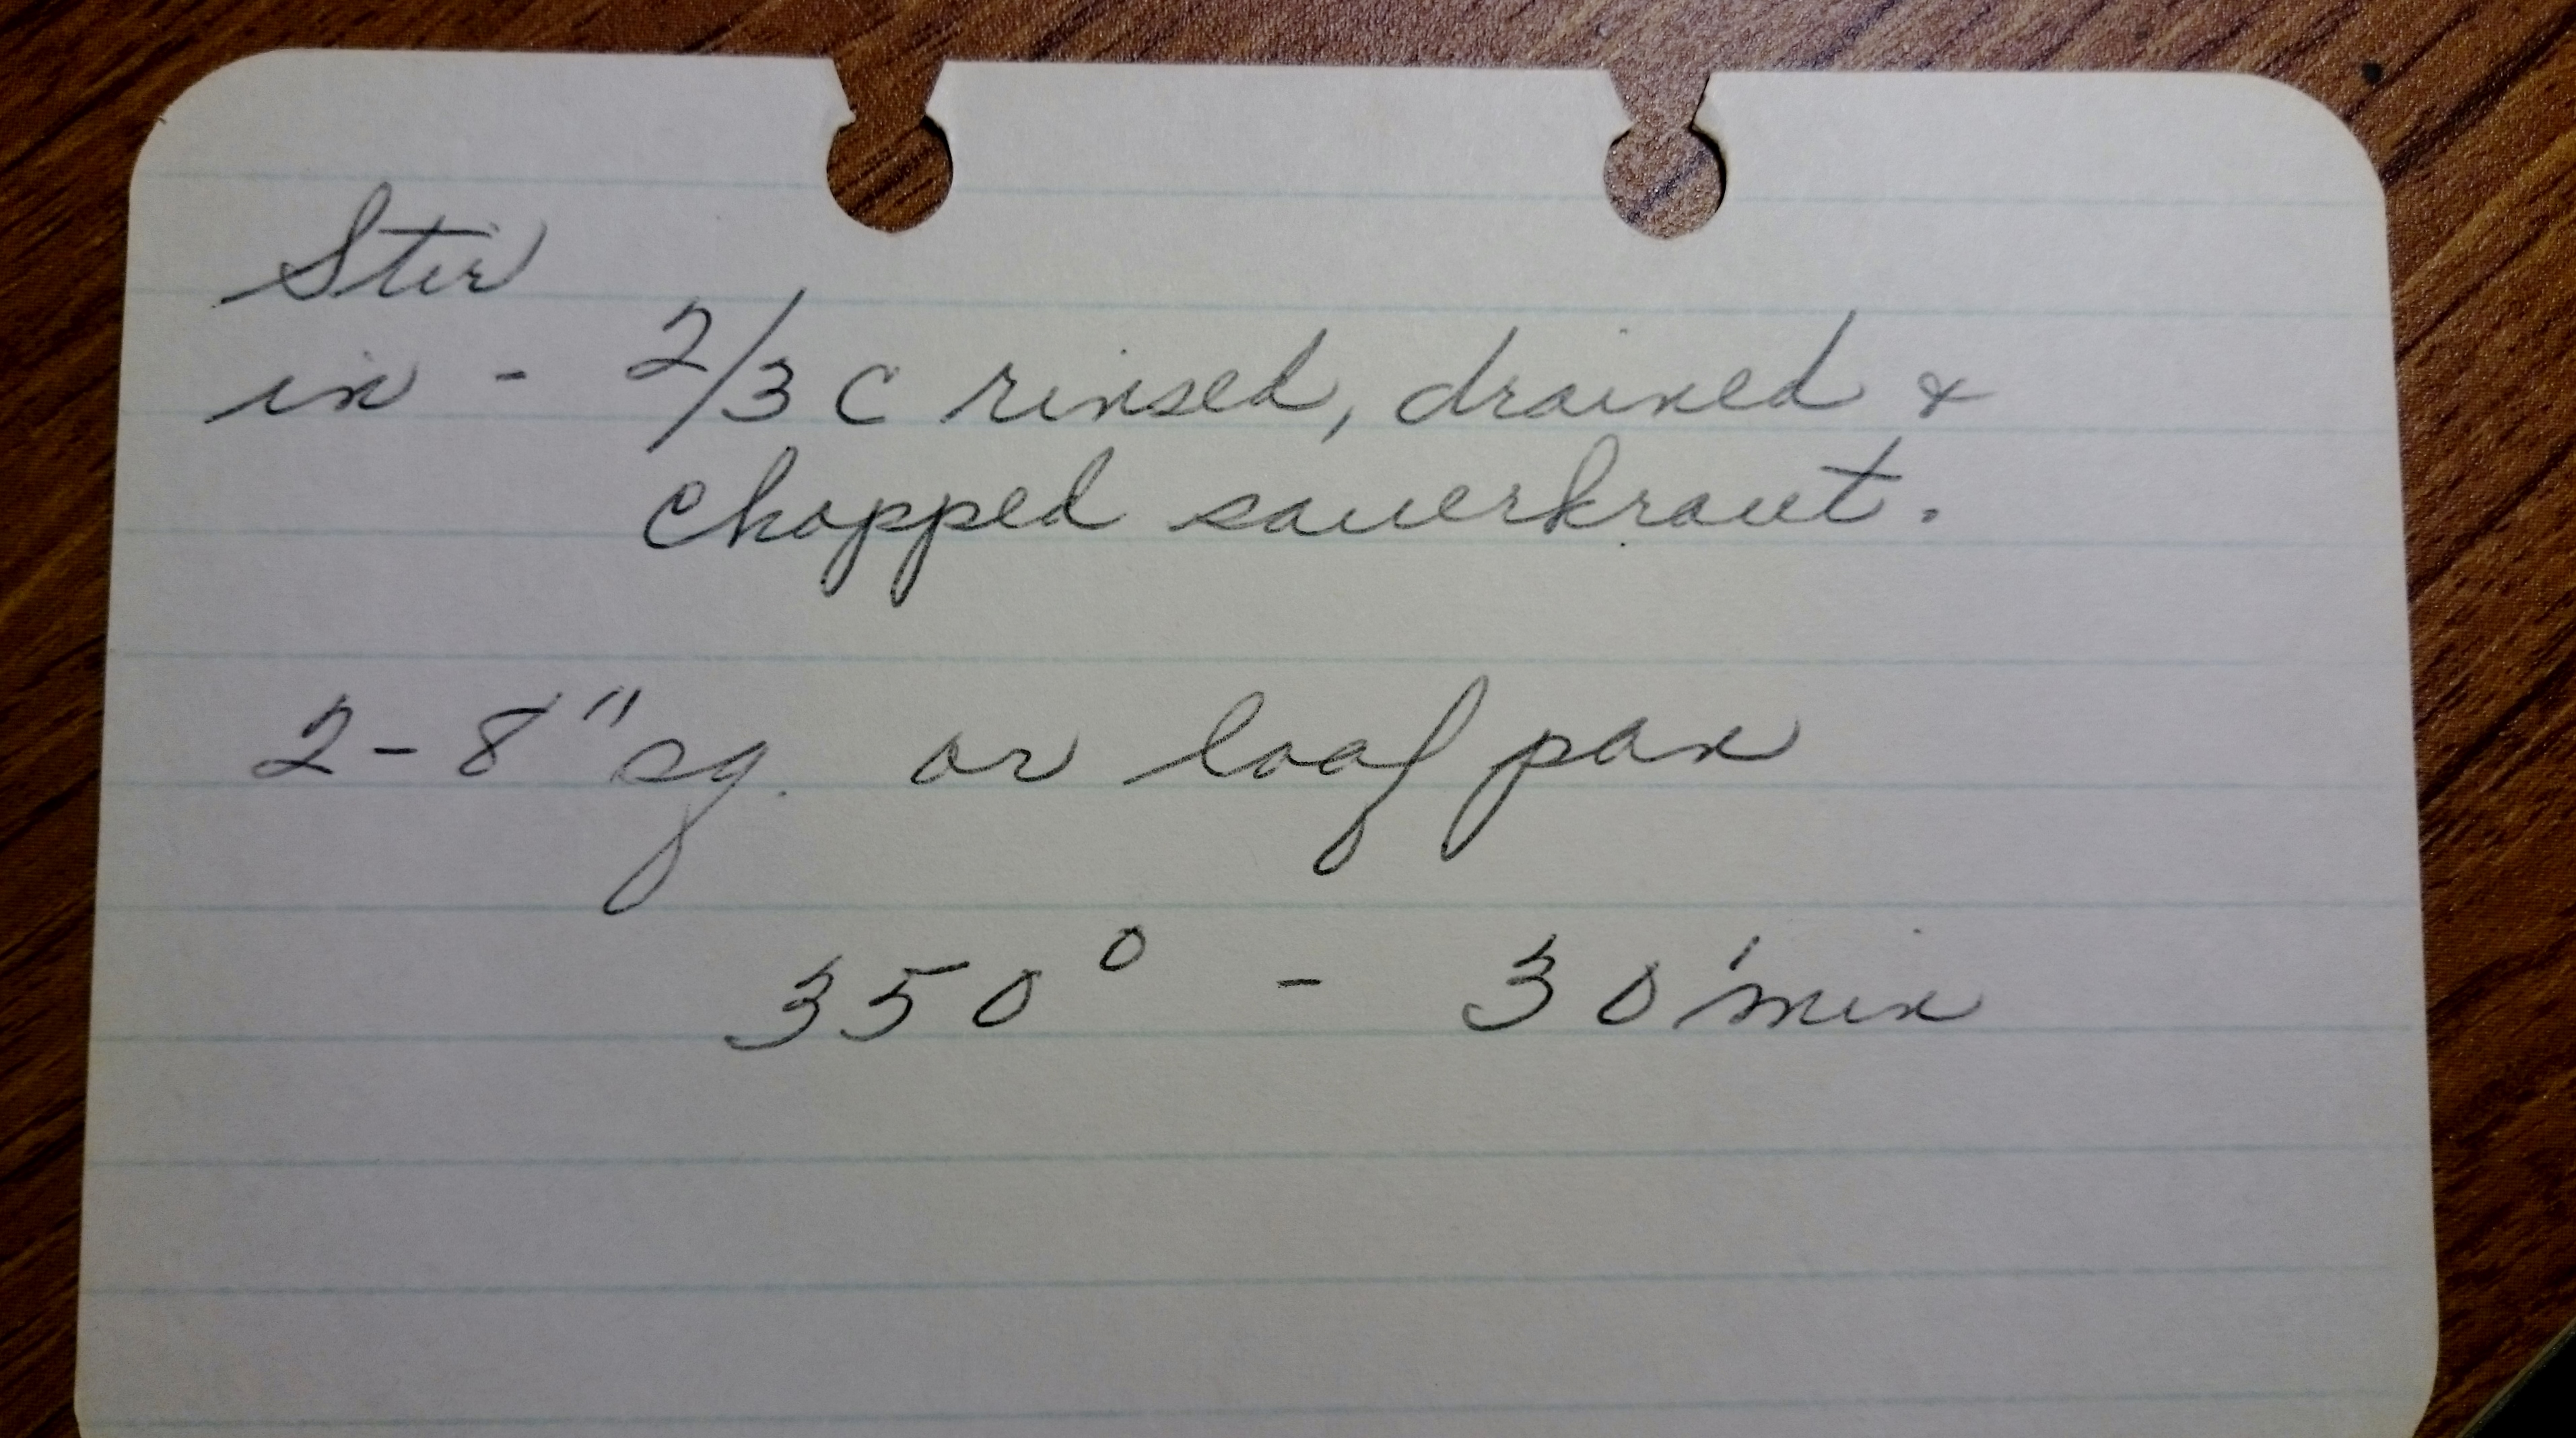 Stir
in - 2/3 C rinsed, drained &
chopped sauerkraut.
2-8" sq. or loaf pan
350° - 30 min